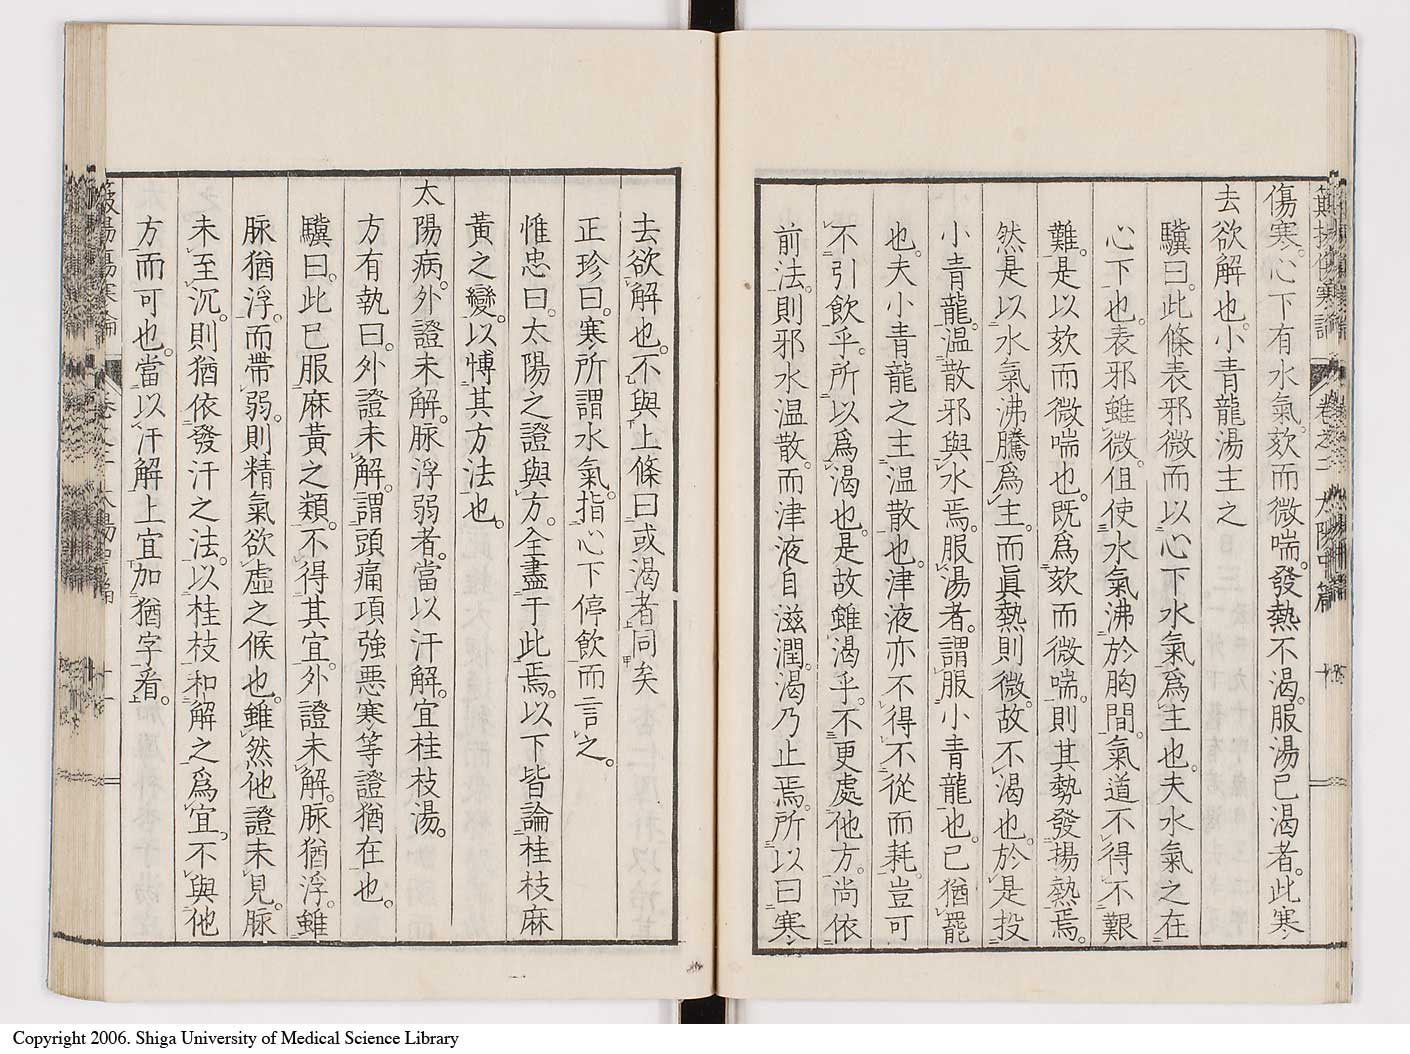 傷寒。心下有水氣。欬而微喘。發熱不渴。服湯已渴者。此寒
去欲解也。小青龍湯主之
驥曰。此條表邪微而以心下水氣爲主也。夫水氣之在
心下也。表邪雖微。但使水氣沸於胸間。氣道不得不艱
難。是以欬而微喘也。既爲欬而微喘。則其勢發揚熱焉。
然是以水氣沸騰爲主。而眞熱則微。故不渴也。於是投
小青龍。溫散邪與水焉。服湯者。謂服小青龍也。已猶罷
也。夫小青龍之主溫散也。津液亦不得不從而耗。豈可
不引飲乎。所以爲渴也。是故雖渴乎。不更處他方。尚依
前法。則邪水溫散。而津液自滋潤。渴乃止焉。所以曰寒
去欲解也。不與上條曰或渴者同矣
正珍曰。寒所謂水氣。指心下停飲而言之。
惟忠曰。太陽之證與方。全盡于此焉。以下皆論桂枝麻
黃之變。以愽其方法也。
太陽病。外證未解。脈浮弱者。當以汗解。宜桂枝湯。
方有執曰。外證未解。謂頭痛項強惡寒等證猶在也。
驥曰。此已服麻黃之類。不得其宜。外證未解。脈猶浮。雖
脈猶浮。而帶弱。則精氣欲虛之候也。雖然他證未見。脈
未至沉。則猶依發汗之法。以桂枝和解之爲宜。不與他
方而可也。當以汗解上宜加猶字看。
卷之二
太陽中篇
Copyright 2006. Shiga University of Medical Science Library